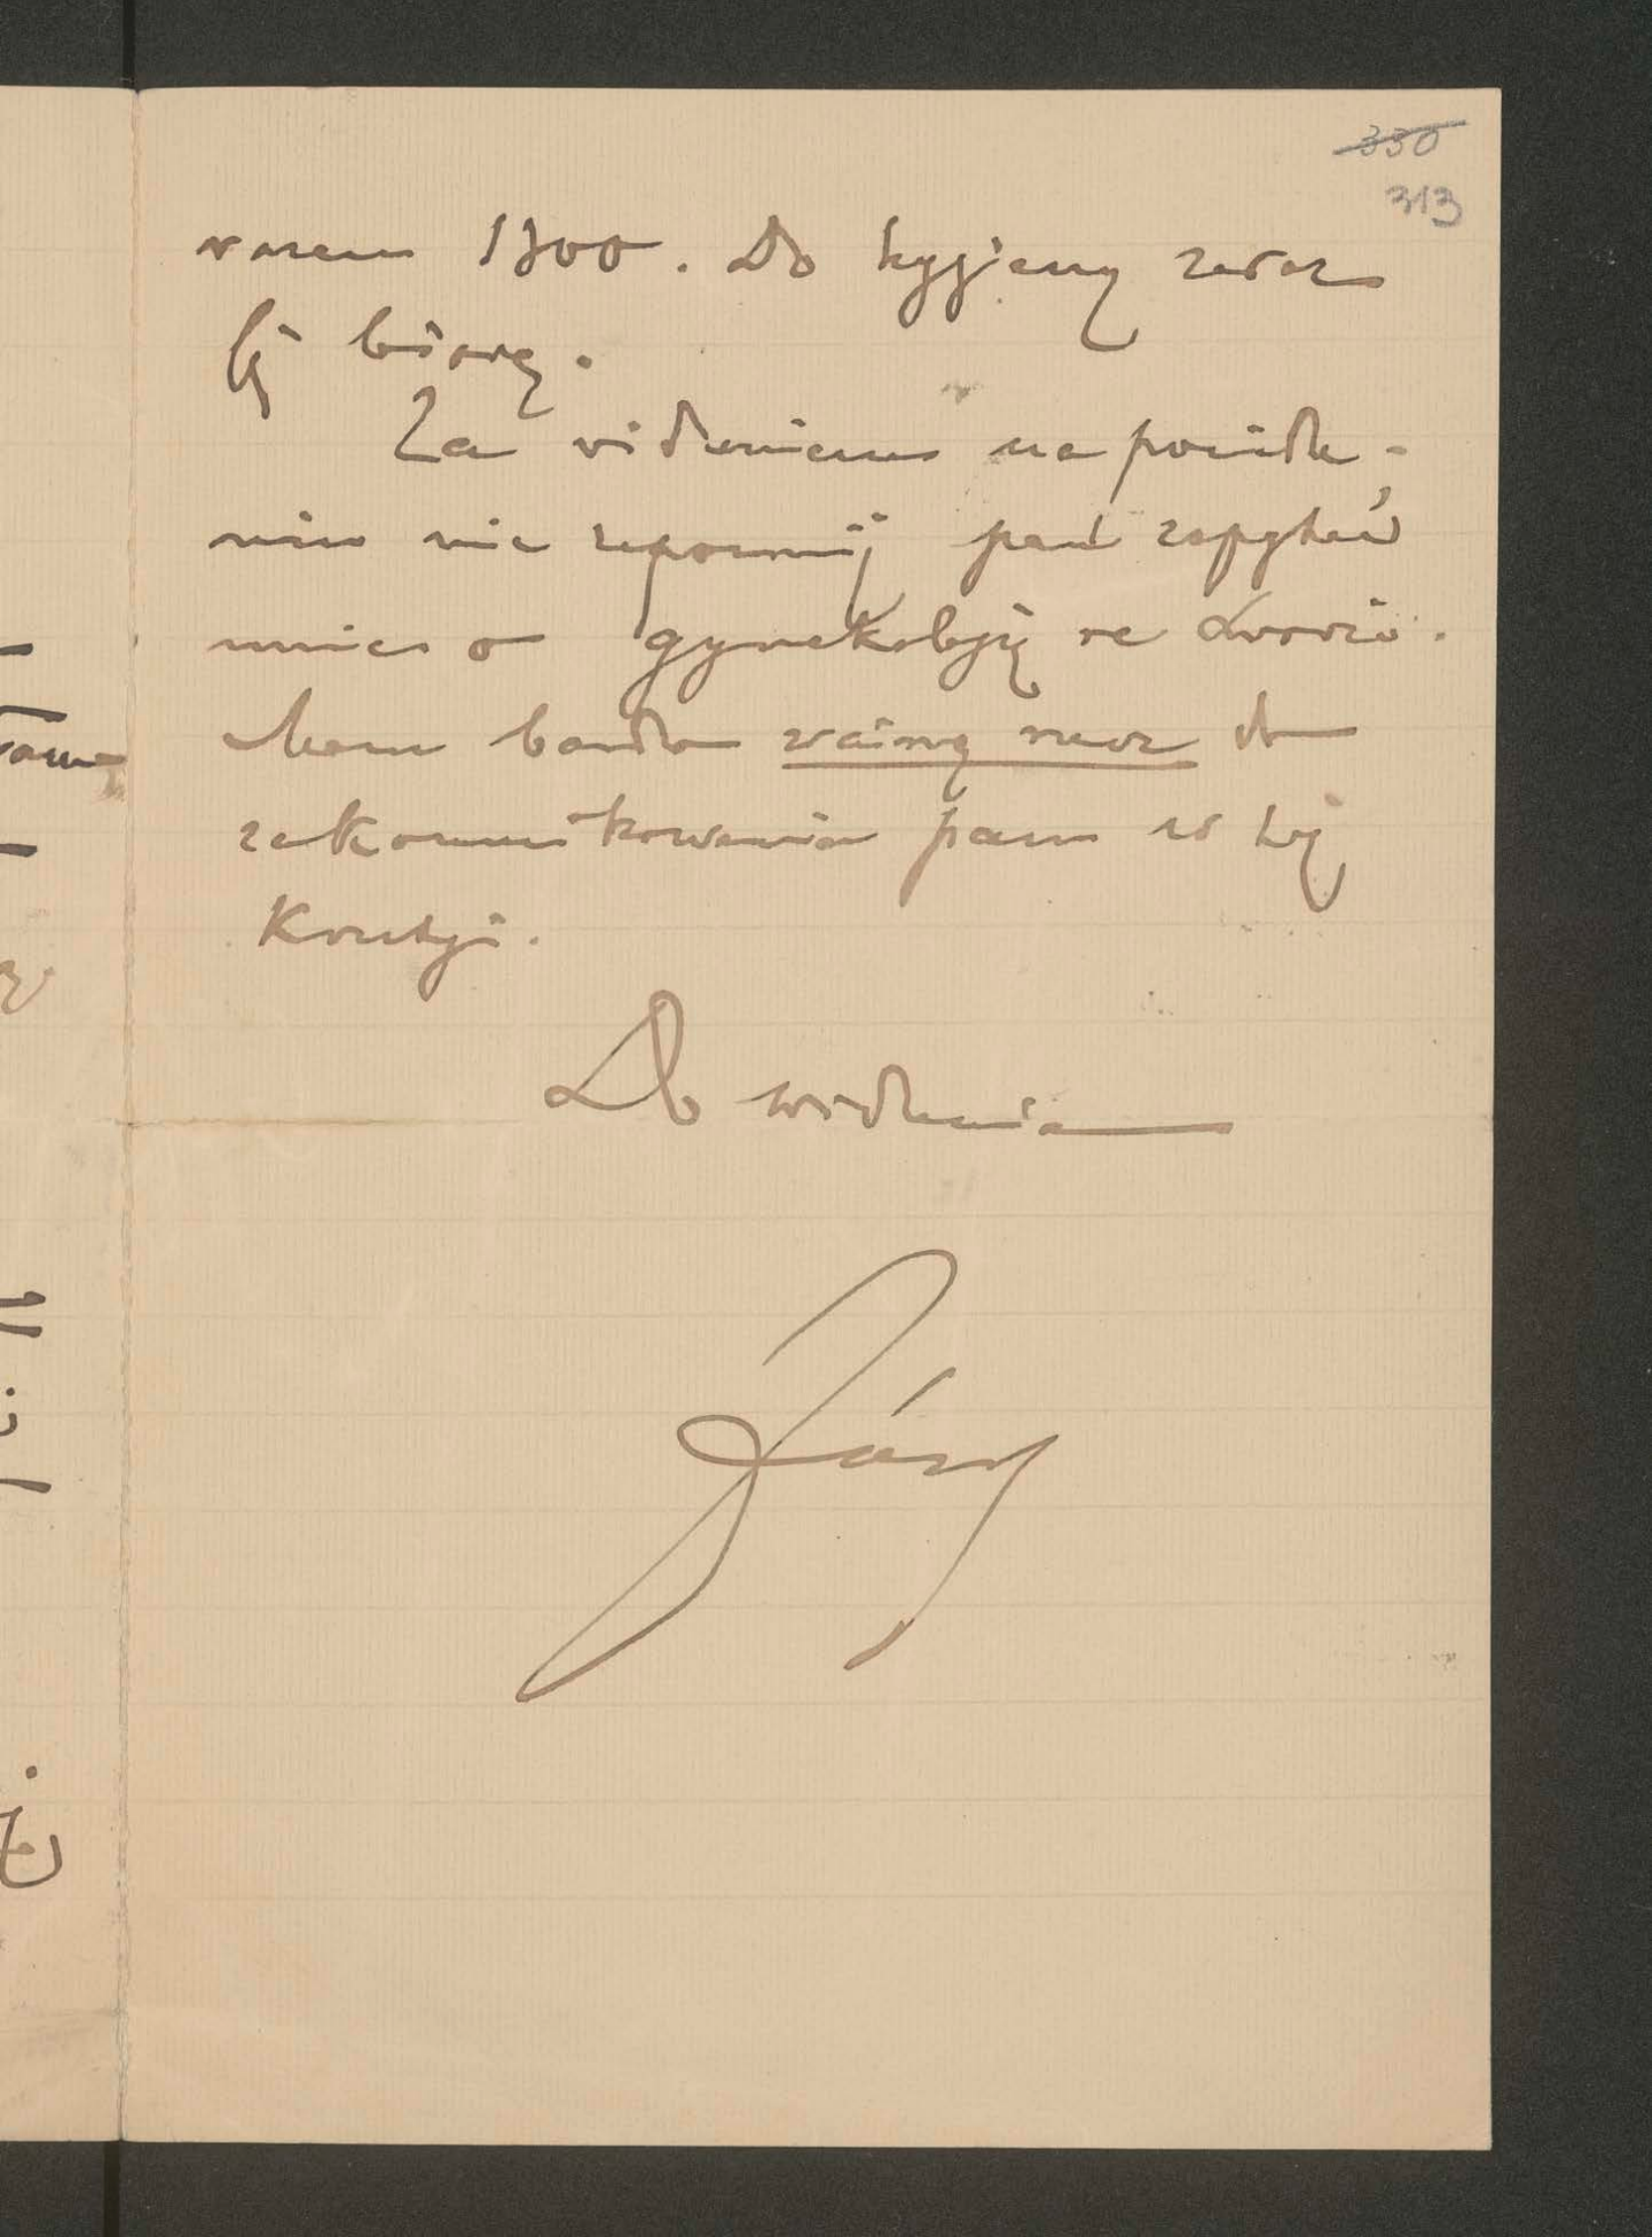 330
313
razem 1700. Do hygieny zaraz
się biorę.
Za widzeniem na posiedze-
niu nie zapomnij pan zapytać
mnie o gynekologję we Lwowie.
Mam bardzo ważną rzecz do
zakomunikowania panu w tej
kwestyi.
Do widzenia